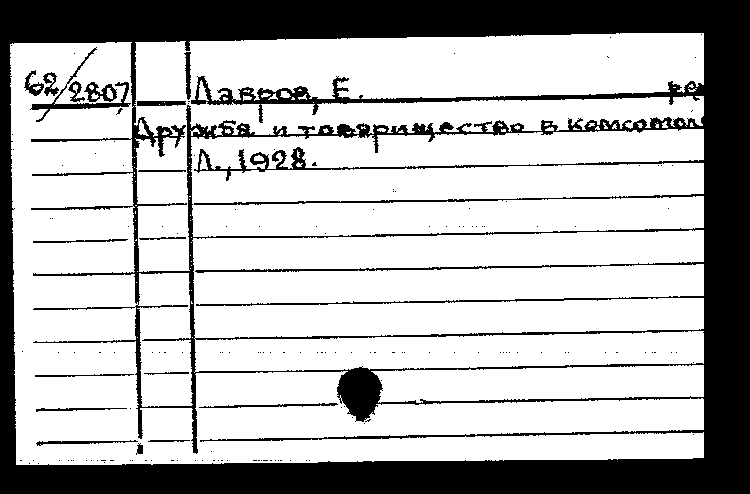 62/2807 Лавров, Е. ре
Дружба и товарищество в комсомол
Л., 1928.